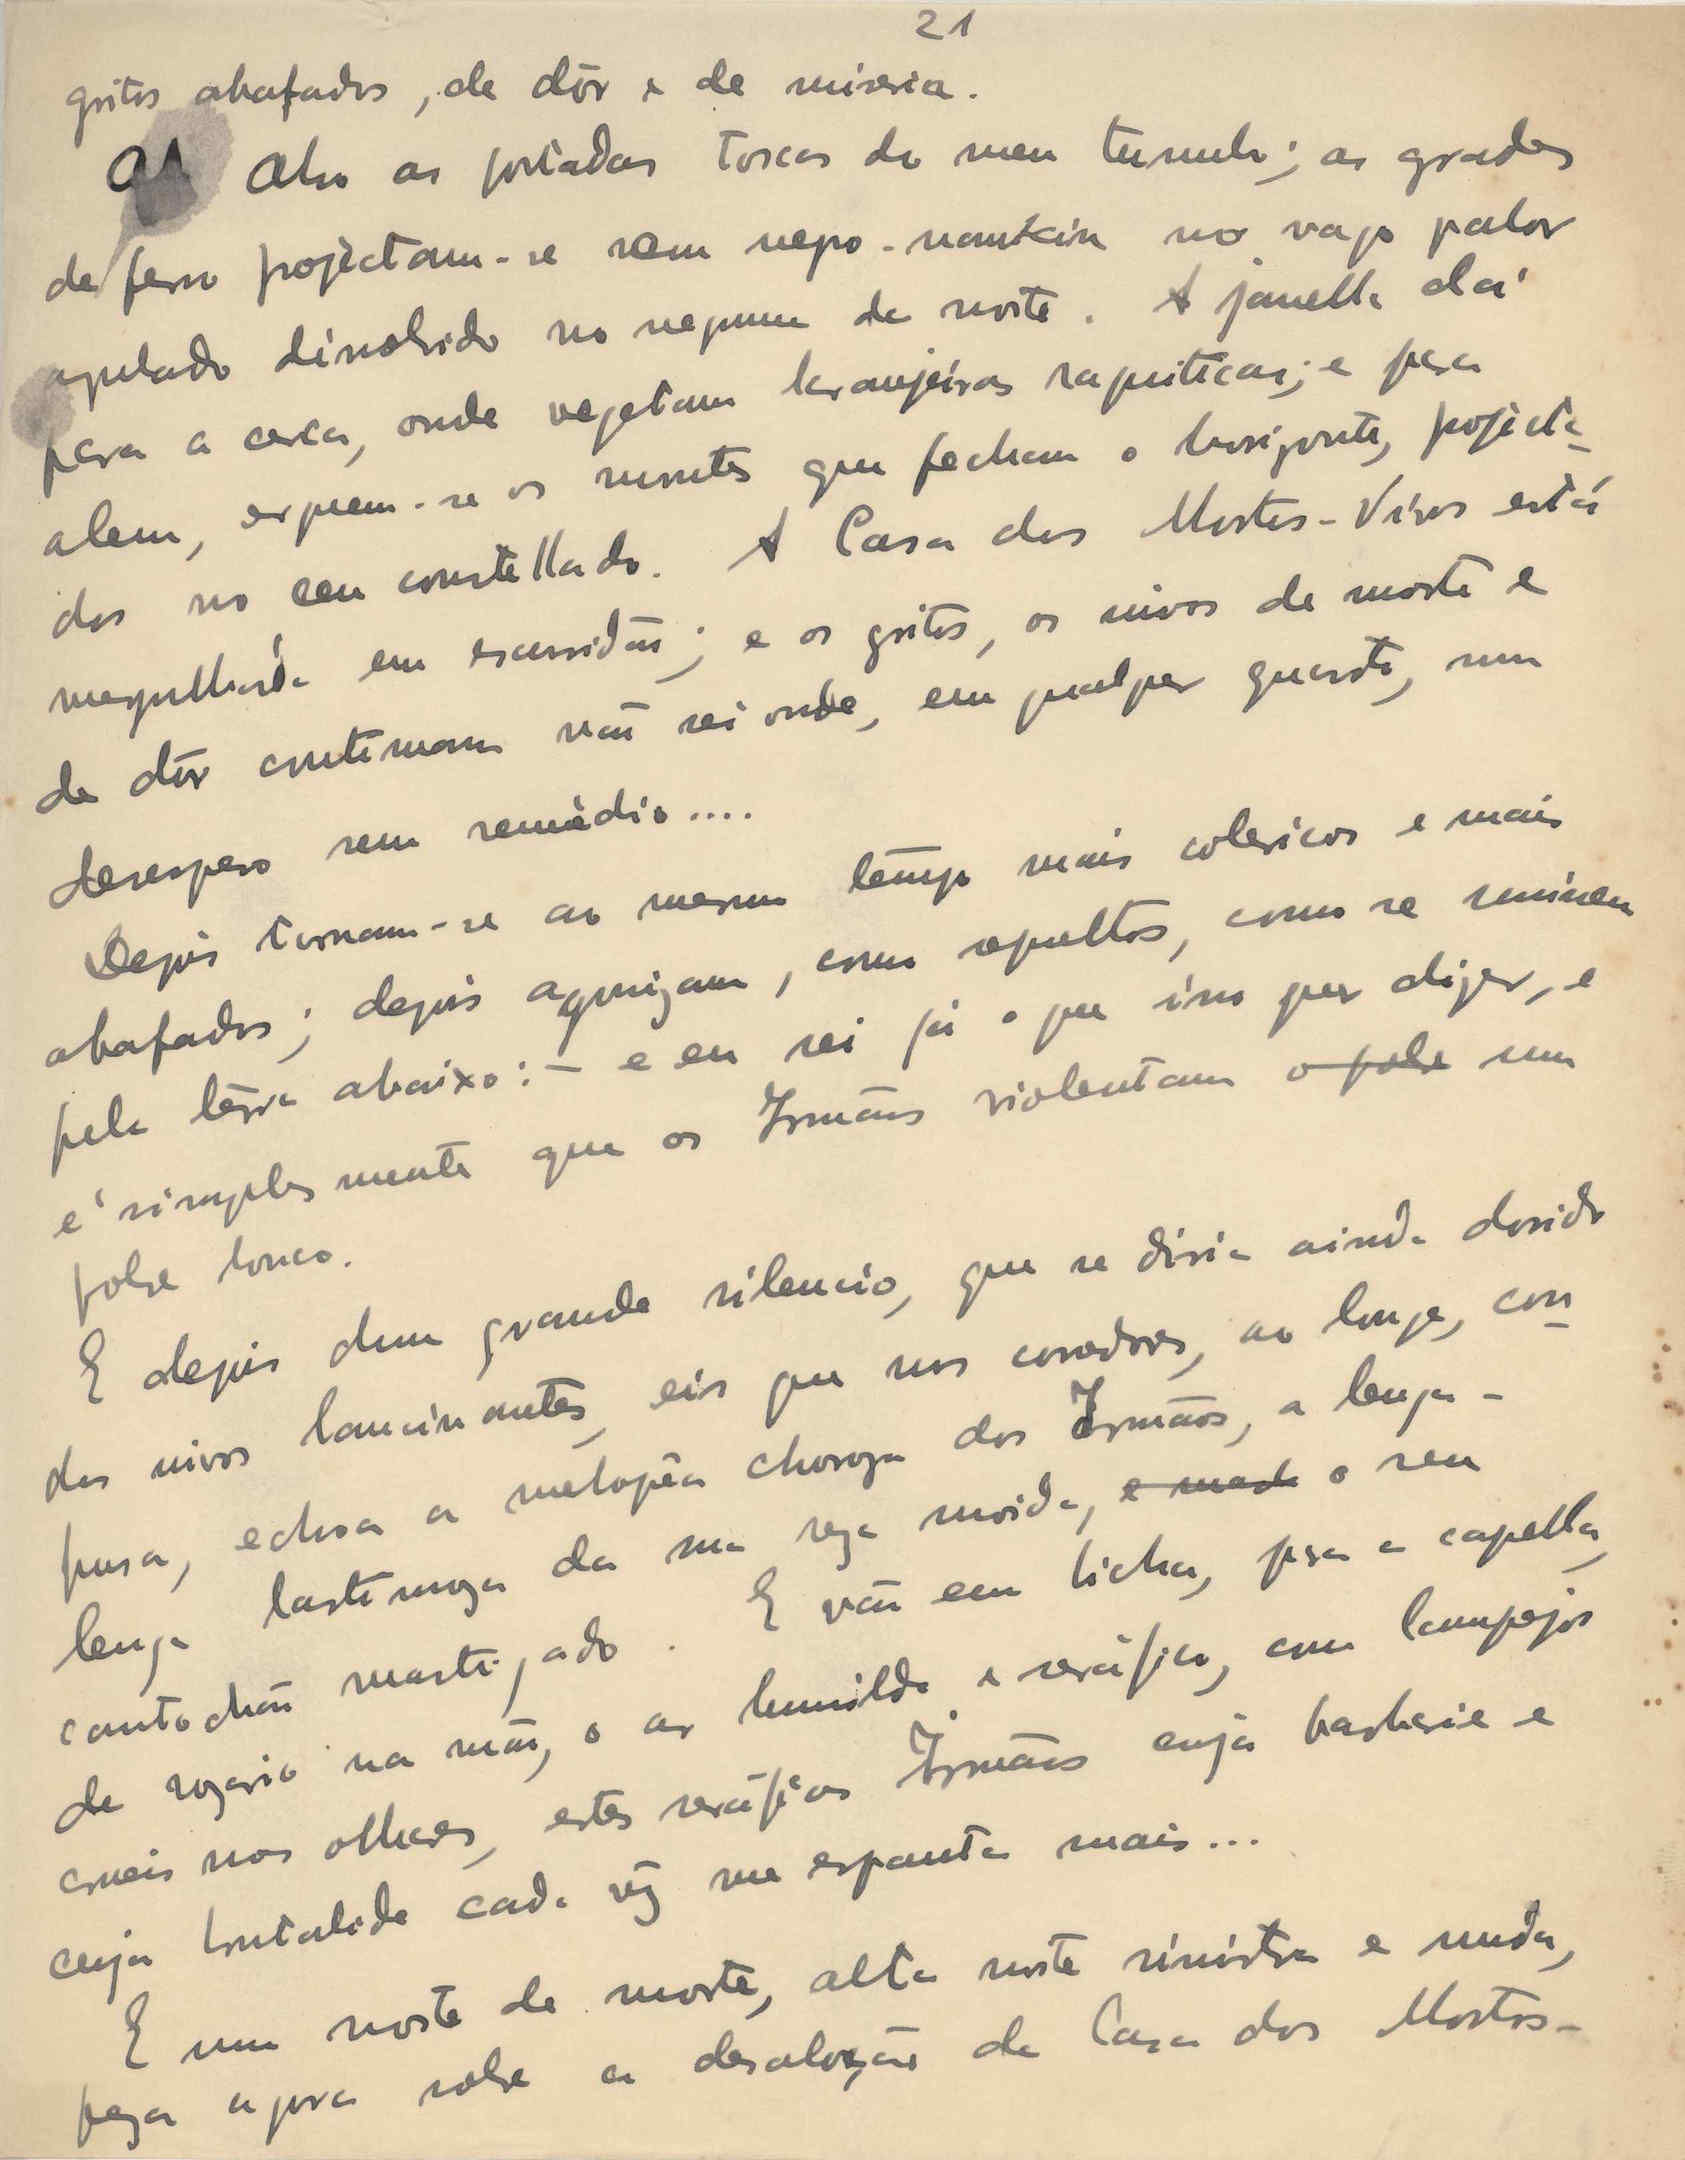 21
gritos abafados, de dôr e de miseria.
Abro as portadas toscas do meu tumulo; as grades
de ferro projéctam-se sem nego-nankin no vago palor
azulado dissolvido no negrume da noite. A janella dá
para a cerca, onde vegetam laranjeiras raquiticas; e pera
alem, erguem-se os montes que fecham o horizonte, projécta-
dos no ceu constellado. A Casa dos Mortos-Vivos está
mergulhada em escuridão; e os gritos, os uivos de morte e
de dôr continuam não sei onde, em qualquer quarto, num
desespero sem remédio....
Depois tornam-se ao mesmo tempo mais colericos e mais
abafados; depois agonizam, como sepultos, como se sumissem
pela terra abaixo: - e eu sei já o que isso quer dizer, e
é simplesmente que os Irmãos violentam o pobre um
pobre louco.
E depois dum grande silencio, que se diria ainda dorido
dos uivos lancinantes, eis que nos corredores, ao longe, con-
fusa, echoa a melopêa choroza dos Irmãos, a lenga-
lenga lastimoza da sua reza moida, o seu
cantochão mastigado. E vão em bicha, pra a capella,
de rozario na mão, o ar humilde e seráfico, com lampejos
crueis nos olhares, estes seráficos Irmãos cuja barberie e
cuja brutalide cada vêz me espanta mais...
E uma noite de morte, alta noite sinistra e muda,
peza agora sobre a desolação da Casa dos Mortos-